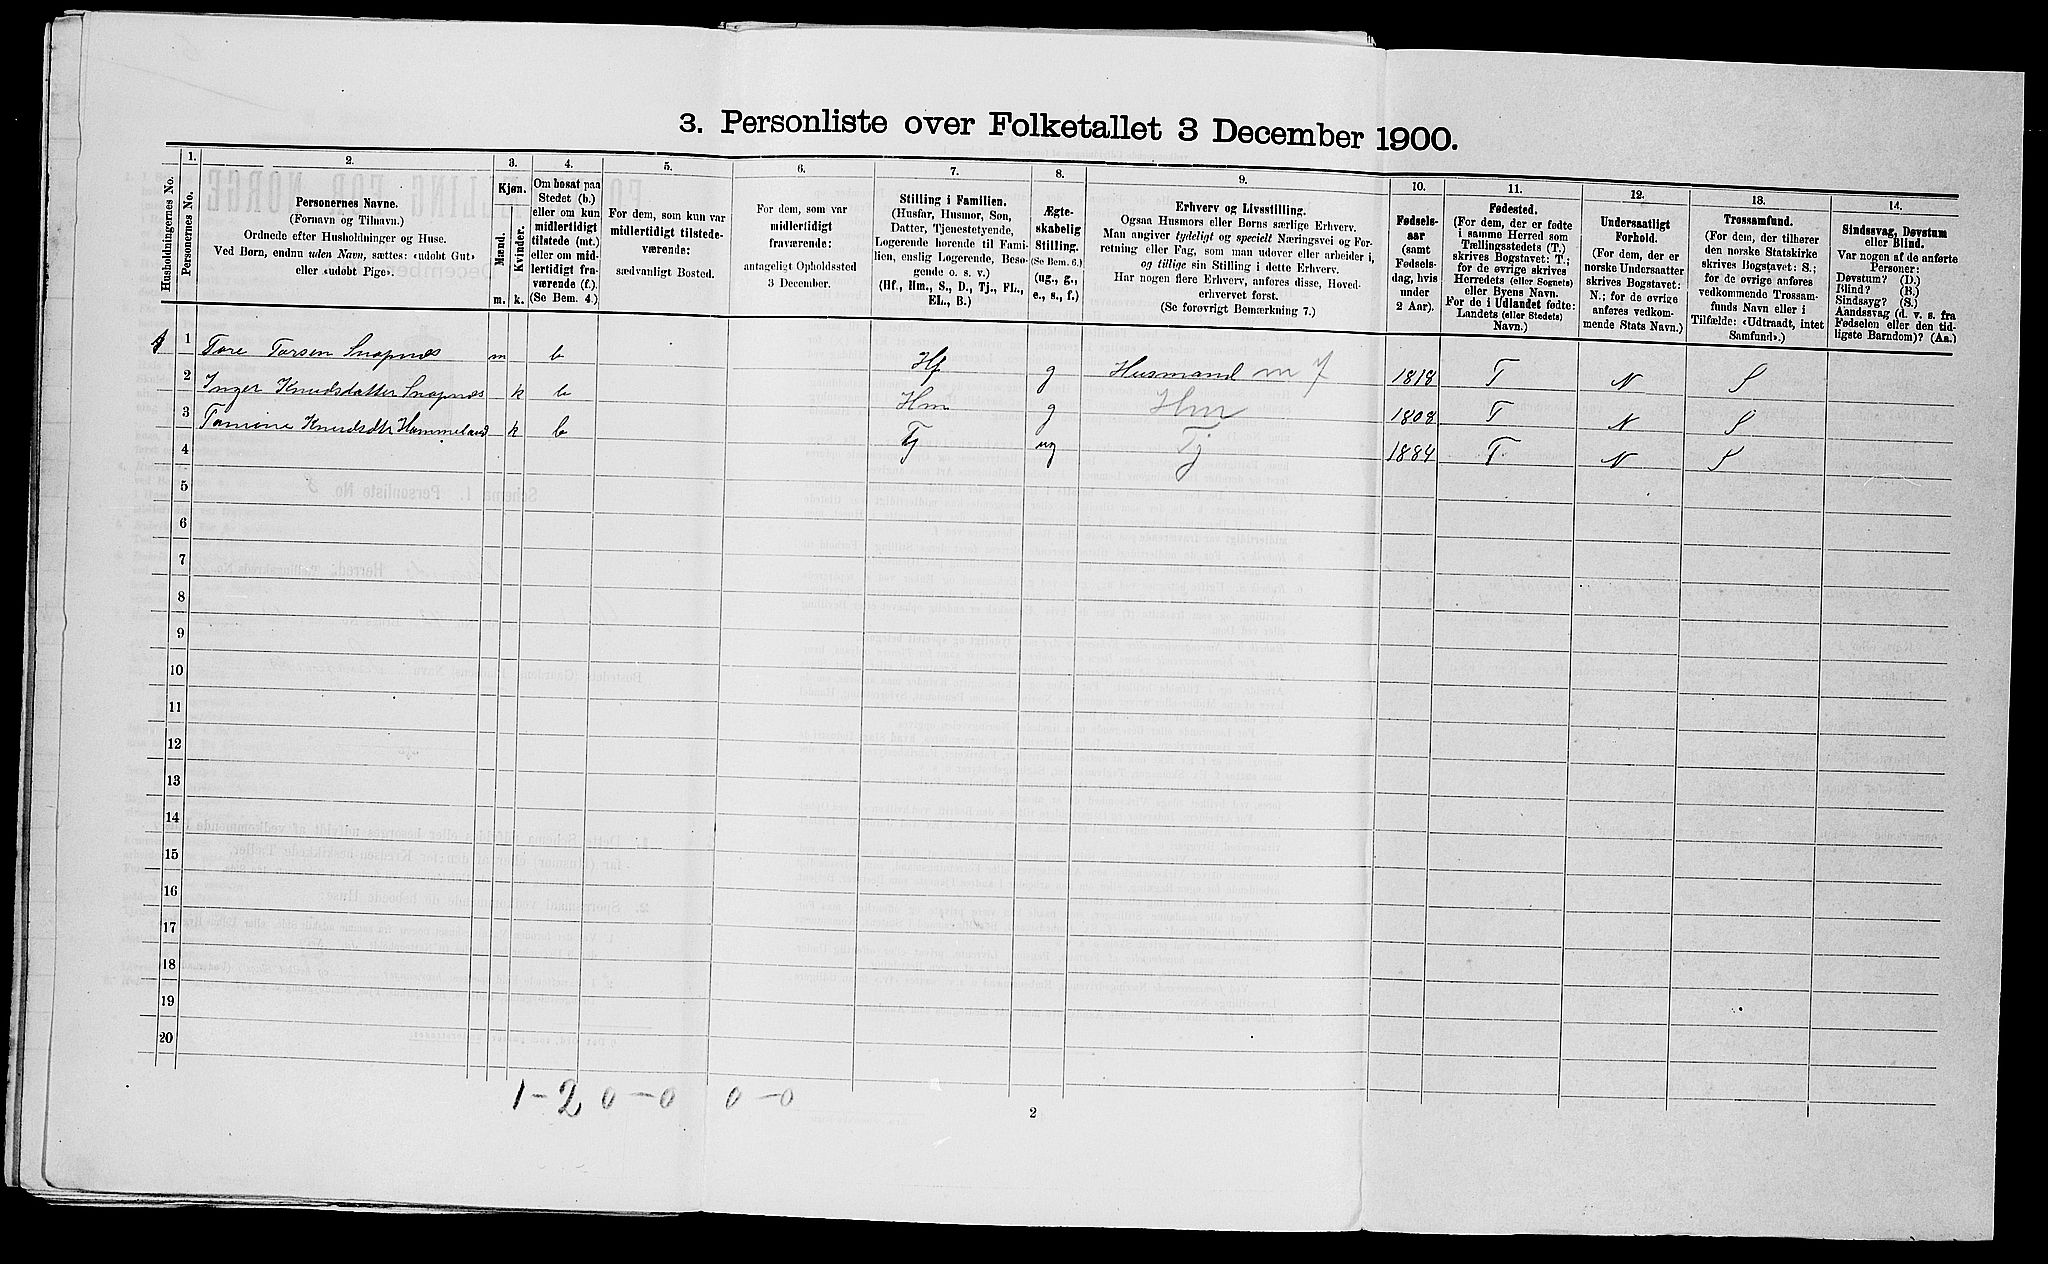 3. Personliste over Folketallet 3 December 1900.
Husholdningernes No.
1.
Personernes No.
2.
Personernes Navne.
(Fornavn og Tilnavn.)
Ordnede efter Husholdninger og Huse.
Ved Børn, endnu uden Navn, sættes: «udøbt Gut»
eller «udøbt Pige».
3.
Kjøn.
Mænd.
Kvinder.
m.
k.
4.
Om bosat paa
Stedet (b.)
eller om kun
midlertidigt
tilstede (mt.)
eller om mid-
lertidigt fra-
værende (f.).
(Se Bem. 4.)
5.
For dem, som kun var
midlertidigt tilstede-
værende:
sædvanligt Bosted.
6.
For dem, som var
midlertidigt
fraværende:
antageligt Opholdssted
3 December.
7.
Stilling i Familien.
(Husfar, Husmor, Søn,
Datter, Tjenestetyende,
Logerende hørende til Fami-
lien, enslig Logerende, Besø-
gende o. s. v.)
(Hf., Hm., S., D., Tj., FL.,
EL., B.)
8.
Ægte-
skabelig
Stilling.
(Se Bem. 6.)
(ug., g.,
e., s., f.)
9.
Erhverv og Livsstilling.
Ogsaa Husmors eller Børns særlige Erhverv.
Man angiver tydeligt og specielt Næringsvei og For-
retning eller Fag, som man udøver eller arbeider i,
og tillige sin Stilling i dette Erhverv.
Har nogen flere Erhverv, anføres disse, Hoved-
erhvervet først.
(Se forøvrigt Bemærkning 7.)
10.
Fødsels-
aar
(samt
Fødsels-
dag, hvis
under
2 Aar).
11.
Fødested.
(For dem, der er fødte
i samme Herred som
Tællingsstedets (T.)
skrives Bogstavet: T.;
for de øvrige skrives
Herredets (eller Sognets)
eller Byens Navn.
For de i Udlandet fødte:
Landets (eller Stedets)
Navn.)
12.
Undersaatligt
Forhold.
(For dem, der er
norske Undersaatter
skrives Bogstavet:
N.; for de øvrige
anføres vedkom-
mende Stats Navn.)
13.
Trossamfund.
(For dem, der tilhører
den norske Statskirke
skrives Bogstavet: S.;
for de øvrige anføres
vedkommende Trossam-
funds Navn eller i
Tilfælde: «Udtraadt, intet
Samfund».)
14.
Sindssvag, Døvstum
eller Blind.
Var nogen af de anførte
Personer:
Døvstum? (D.)
Blind? (B.)
Sindssyg? (S.)
Aandssvag (d. v. s. fra
Fødselen eller den tid-
ligste Barndom)? (Aa.)
1 1 Tore Torsen Snapnæs m b Hf g Husmand m J 1818 T N S
2 Inger Knudsdatter Snapnæs k b Hm g Hm 1808 T N S
3 Tomine Knudsdtr Hommeland k b Tj ug Tj 1884 T N S
4
5
6
7
8
9
10
11
12
13
14
15
16
17
18
19
20
1 - 2 0 - 0 0 - 0
2